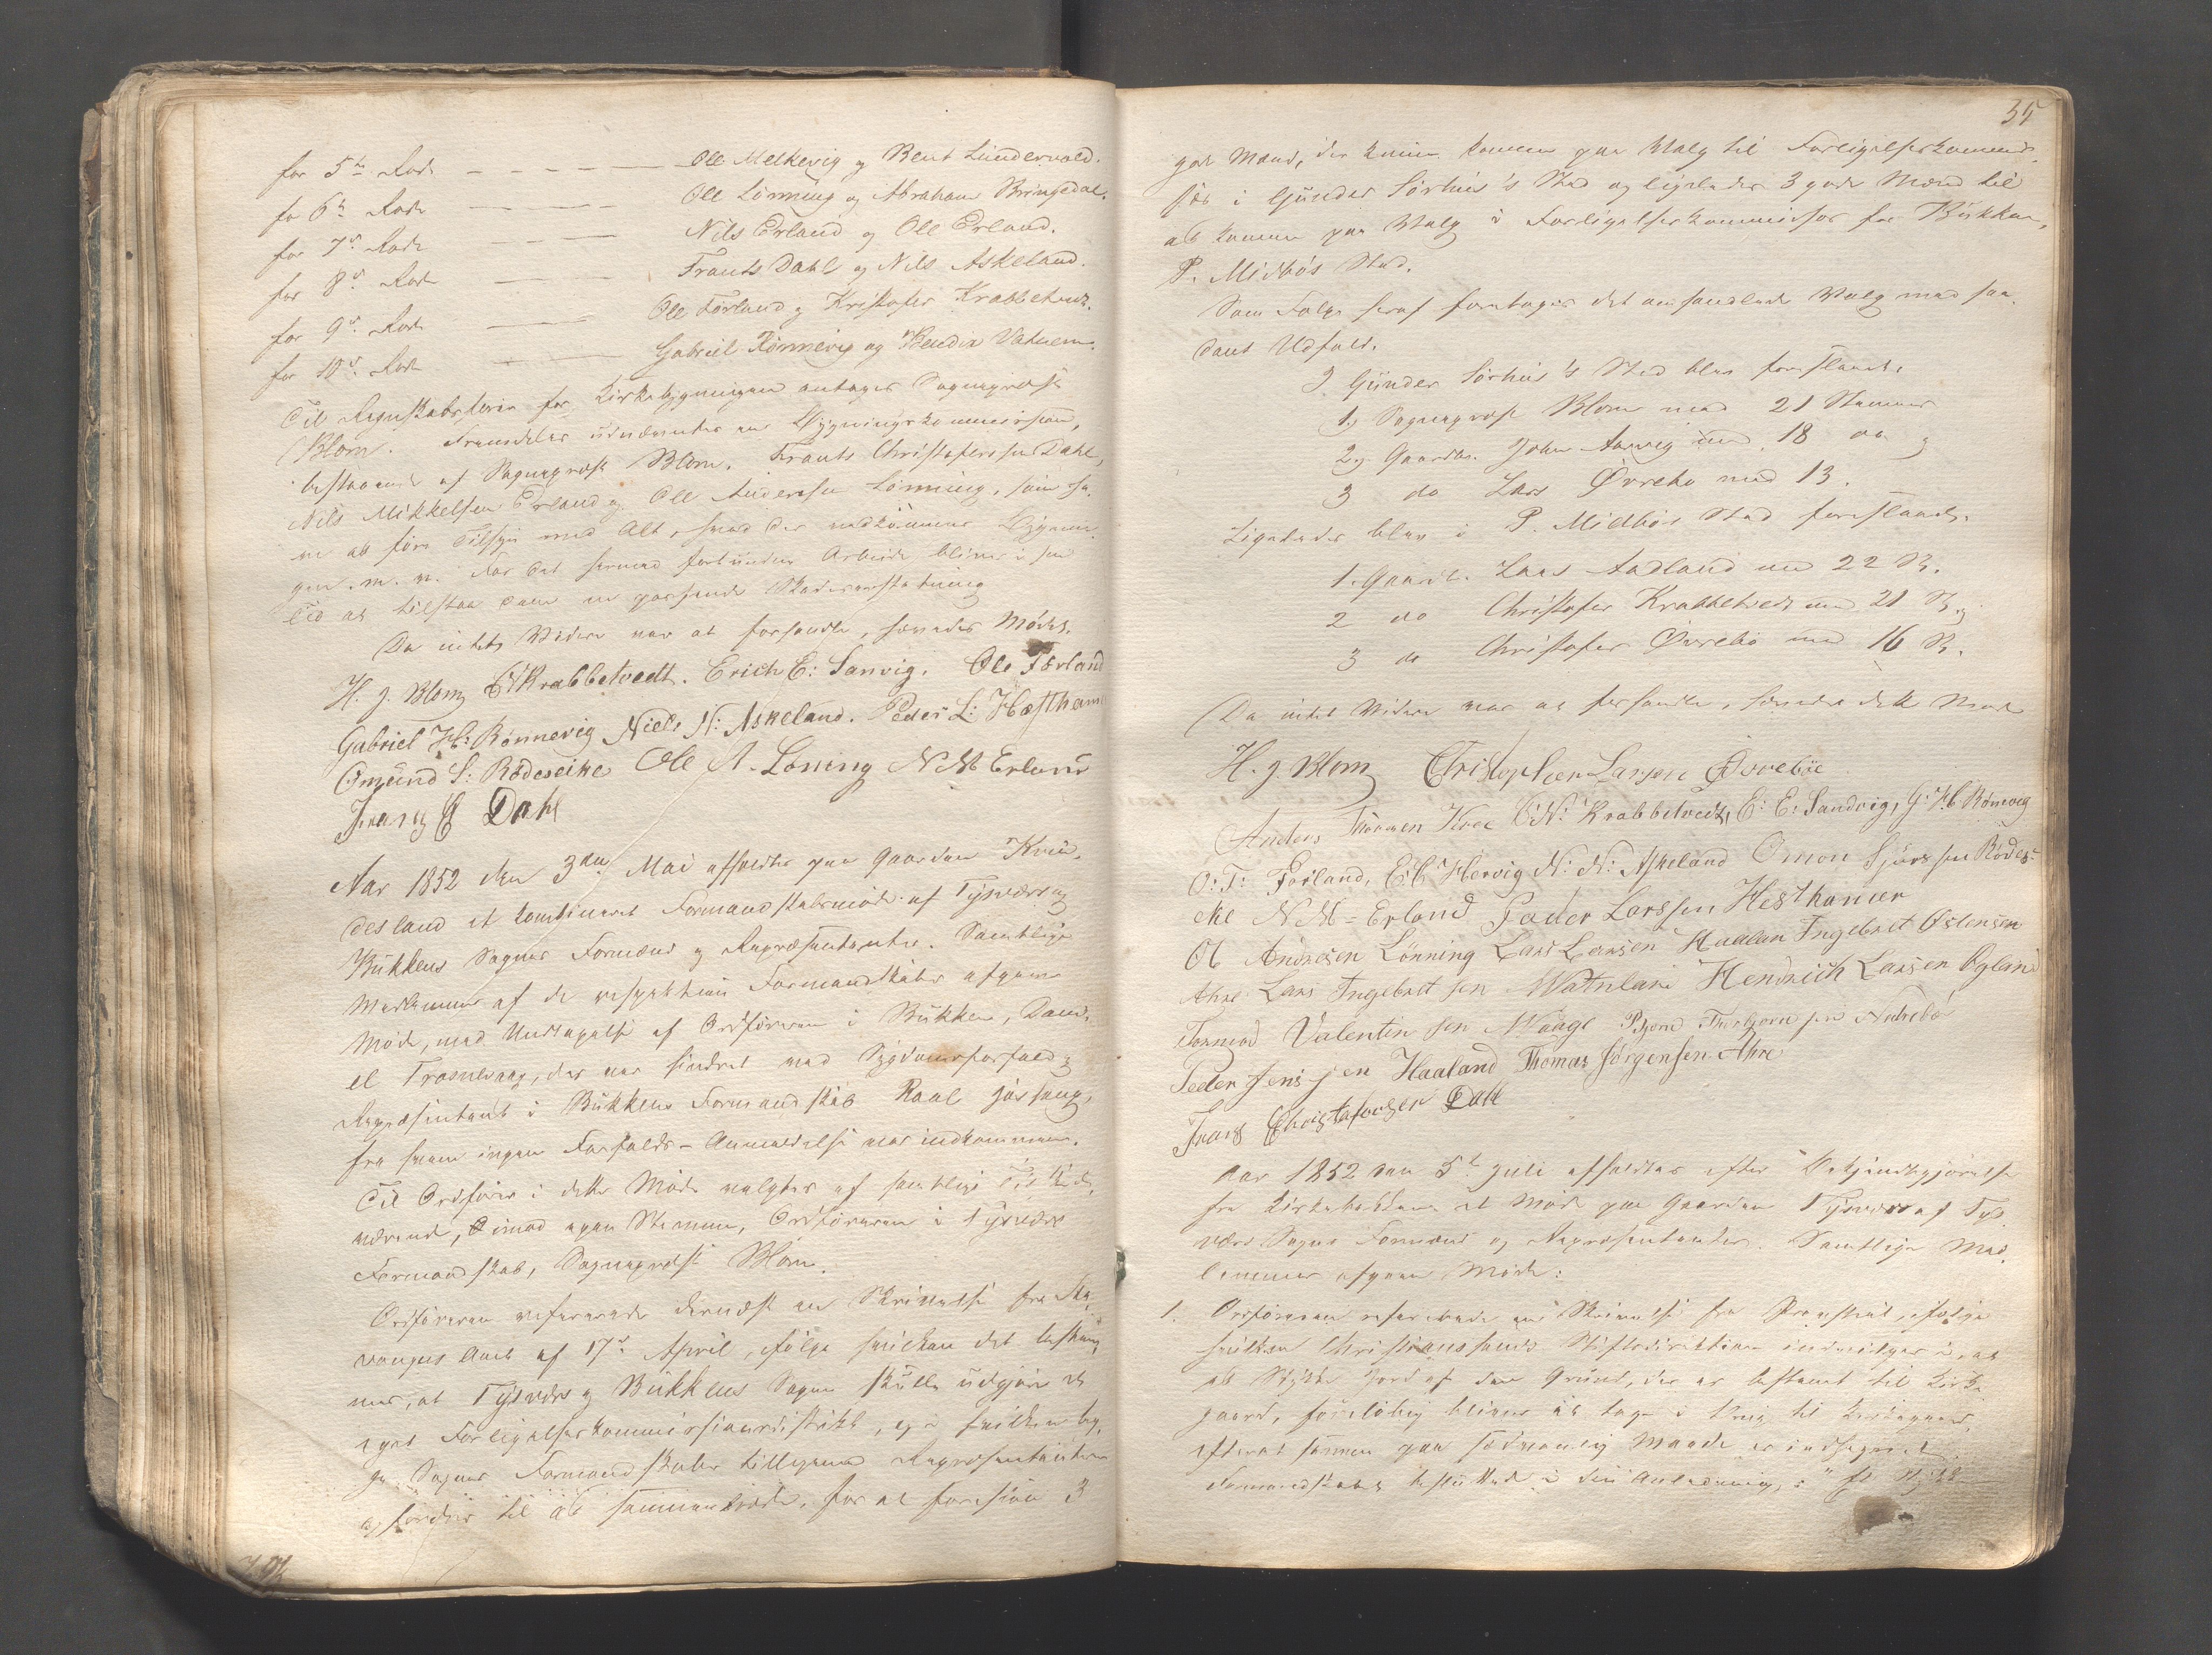 for 5te Rode — — — — — Ole Melkevig og Bent Lündervold.
for 6te Rode — — — Ole Lönning og Abraham Bringedal.
for 7de Rode — — — Nils Erland og Ole Erland.
for 8de Rode — — Frants Dahl og Nils Askeland.
for 9de Rode — — Ole Förland og Kristofer Krabbetvedt.
for 10de Rode — — Gabriel Rönnevig og Bendix Vatnem.
Til Regnskabsförer for Kirkebygningen antages Sogneprest
Blom. Fremdeles udnævntes en Bygningskommission,
bestaaende af Sogneprest Blom, Frants Christofersen Dahl,
Nils Mikkelsen Erland og Ole Andersen Lönning, som ha-
ve at före Tilsyn med Alt, hvad der vedkommer Bygnin-
gen m. v. For det hermed forbundne Arbeide bliver i sin
Tid at tilstaa dem en passende Skadeserstatning
Da intet Videre var at forhandle, hævedes Mödet.
H. J. Blom C N Krabbetvedt. Erich E: Sanvig. Ole Förland
Gabriel H: Rönnevig Niels N: Askeland. Peder L: Hæstham
Omund S: Rödeseike Ole A. Löning N M Erland
Frans C Dahl
Aar 1852 den 3die Mai afholdtes paa Gaarden Kvin-
desland et kombineret Formandskabsmöde af Tysvær og
Bukkens Sognes Formænd og Repræsentanter. Samtlige
Medlemmer af de respektive Formandskaber afgave
Möde, med Undtagelse af Ordföreren i Bukken, Dani-
el Trosnavaag, der var hindret ved Sygdomsforfald og
Repræsentant i Bukkens Formandskab Roal Jössang,
fra hvem ingen Forfalds-Anmeldelse var indkommen.
Til Ordförer i dette Möde valgtes af samtlige Tilstede-
værende, imod egen Stemme, Ordföreren i Tysvær
Formandskab, Sogneprest Blom.
Ordföreren refererede dernæst en Skrivelse fra Sta-
vanger Amt af 17de April, ifölge hvilken det bestem-
mes, at Tysvær og Bukkens Sogne skulle udgjöre et
eget Forligelseskommissionsdistrikt, og i hvilken beg-
ge Sognes Formandskaber tilligemed Repræsentanterne
opfordres til at sammentræde, for at foreslaa 3
35
gode Mænd, der kunne komme paa Valg til Forligelseskommis-
sær i Gunder Sörhus's Sted og ligeledes 3 gode Mænd til
at komme paa Valg i Forligelseskommissær for Bukken,
P. Midbös Sted.
Som Fölge heraf foretoges det omhandlede Valg med saa-
dant Udfald.
I Gunder Sörhus's Sted blev foreslaaet:
1. Sogneprest Blom med 21 Stemmer
2. Gaardbr. John Aarvig med 18 do og
3 do Lars Övrebö med 13.
Ligeledes blev i P. Midbös Sted foreslaaet:
1. Gaardb. Lars Aadland med 22 St.
2 do Christofer Krabbetvedt med 21 St. og
3 do Christofer Övrebö med 16 St.
Da intet Videre var at forhandle, hævedes dette Möde
H. J. Blom Christopher Larsen Övreböe
Anders Thormen C. N. Krabbetvedt, E: E: Sandvig, G: H: Rönnevig
O: T: Førland, E: Hervig N: N: Askeland Omon Sjürssen Rödes-
eke N M= Erland Peder Larssen Hesthamer
Ol Andresen Lönning Lars Larsen Haaland Ingebret Östensen
Ahre Lars Ingebretsen Watnlani Hendrich Larsen Ögland
Tormod Valentinsen Waage Bjørn Thorbjørnsen Nedrebö
Peder Jenssen Haaland Thomas Jörgensen Ahre
Frans Christofersen Dahl
Aar 1852 den 5te Juli afholdtes efter Bekjendtgjörelse
fra Kirkebakken et Möde paa Gaarden Tysvær af Tys-
vær Sogns Formænd og Repræsentanter. Samtlige Med-
lemmer afgave Möde:
1. Ordföreren refererede en Skrivelse fra Provsten, ifölge
hvilken Christianssands Stiftsdirektion indvilger i, at
et Stykke Jord af den Grund, der er bestemt til Kirke-
gaard, forelöbig bliver at tage i Brug til Kirkegaard,
efterat samme paa sædvanlig Maade er indhegnet.
Formandskabet besluttede i den Anledning: "Et Stykke